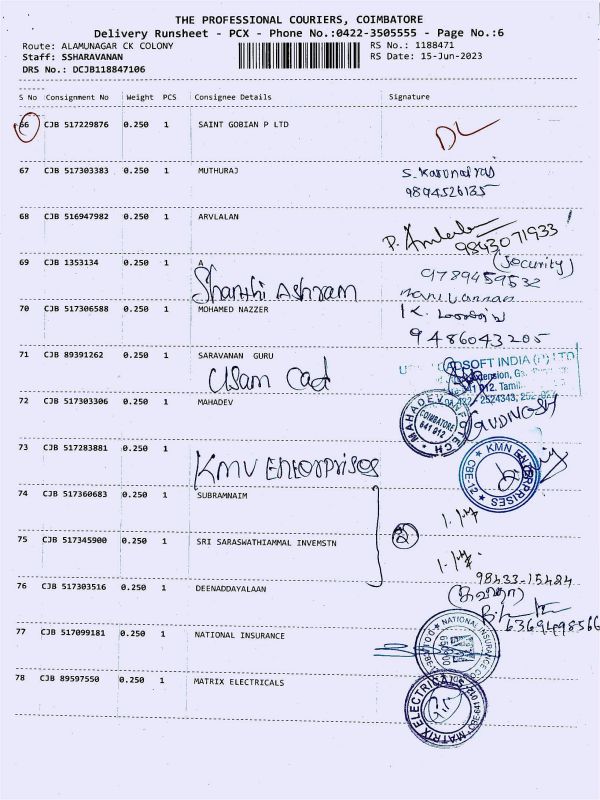 THE PROFESSIONAL COURIERS, COIMBATORE
Delivery Runsheet - PCX - Phone No.:0422-3505555 - Page No.:6
Route: ALAMUNAGAR CK COLONY
RS No.: 1188471
Staff: SSHARAVANAN
RS Date: 15-Jun-2023
DRS No.: DCJB118847106
S No Consignment No Weight PCS Consignee Details Signature
66 CJB 517229876 0.250 1 SAINT GOBIAN P LTD
DL
67 CJB 517303383 0.250 1 MUTHURAJ
9894526135
68 CJB 516947982 0.250 1 ARVLALAN
9843071933
(Security)
69 CJB 1353134 0.250 1 A
Shanthi Ashram
9789459532
70 CJB 517306588 0.250 1 MOHAMED NAZZER
9486043205
71 CJB 89391262 0.250 1 SARAVANAN GURU
CADSOFT INDIA (P) LTD
641 012, Tamil
72 CJB 517303306 0.250 1 MAHADEV
COIMBATORE
641 012
73 CJB 517283881 0.250 1
KMV ENTERPRISES
KMN ENTERPRISES
CBE-12
74 CJB 517360683 0.250 1 SUBRAMNAIM
75 CJB 517345900 0.250 1 SRI SARASWATHIAMMAL INVEMSTN
76 CJB 517303516 0.250 1 DEENADDAYALAAN
98433-15484
6369498566
77 CJB 517099181 0.250 1 NATIONAL INSURANCE
NATIONAL INSURANCE CO
78 CJB 89597550 0.250 1 MATRIX ELECTRICALS
MATRIX ELECTRICALS